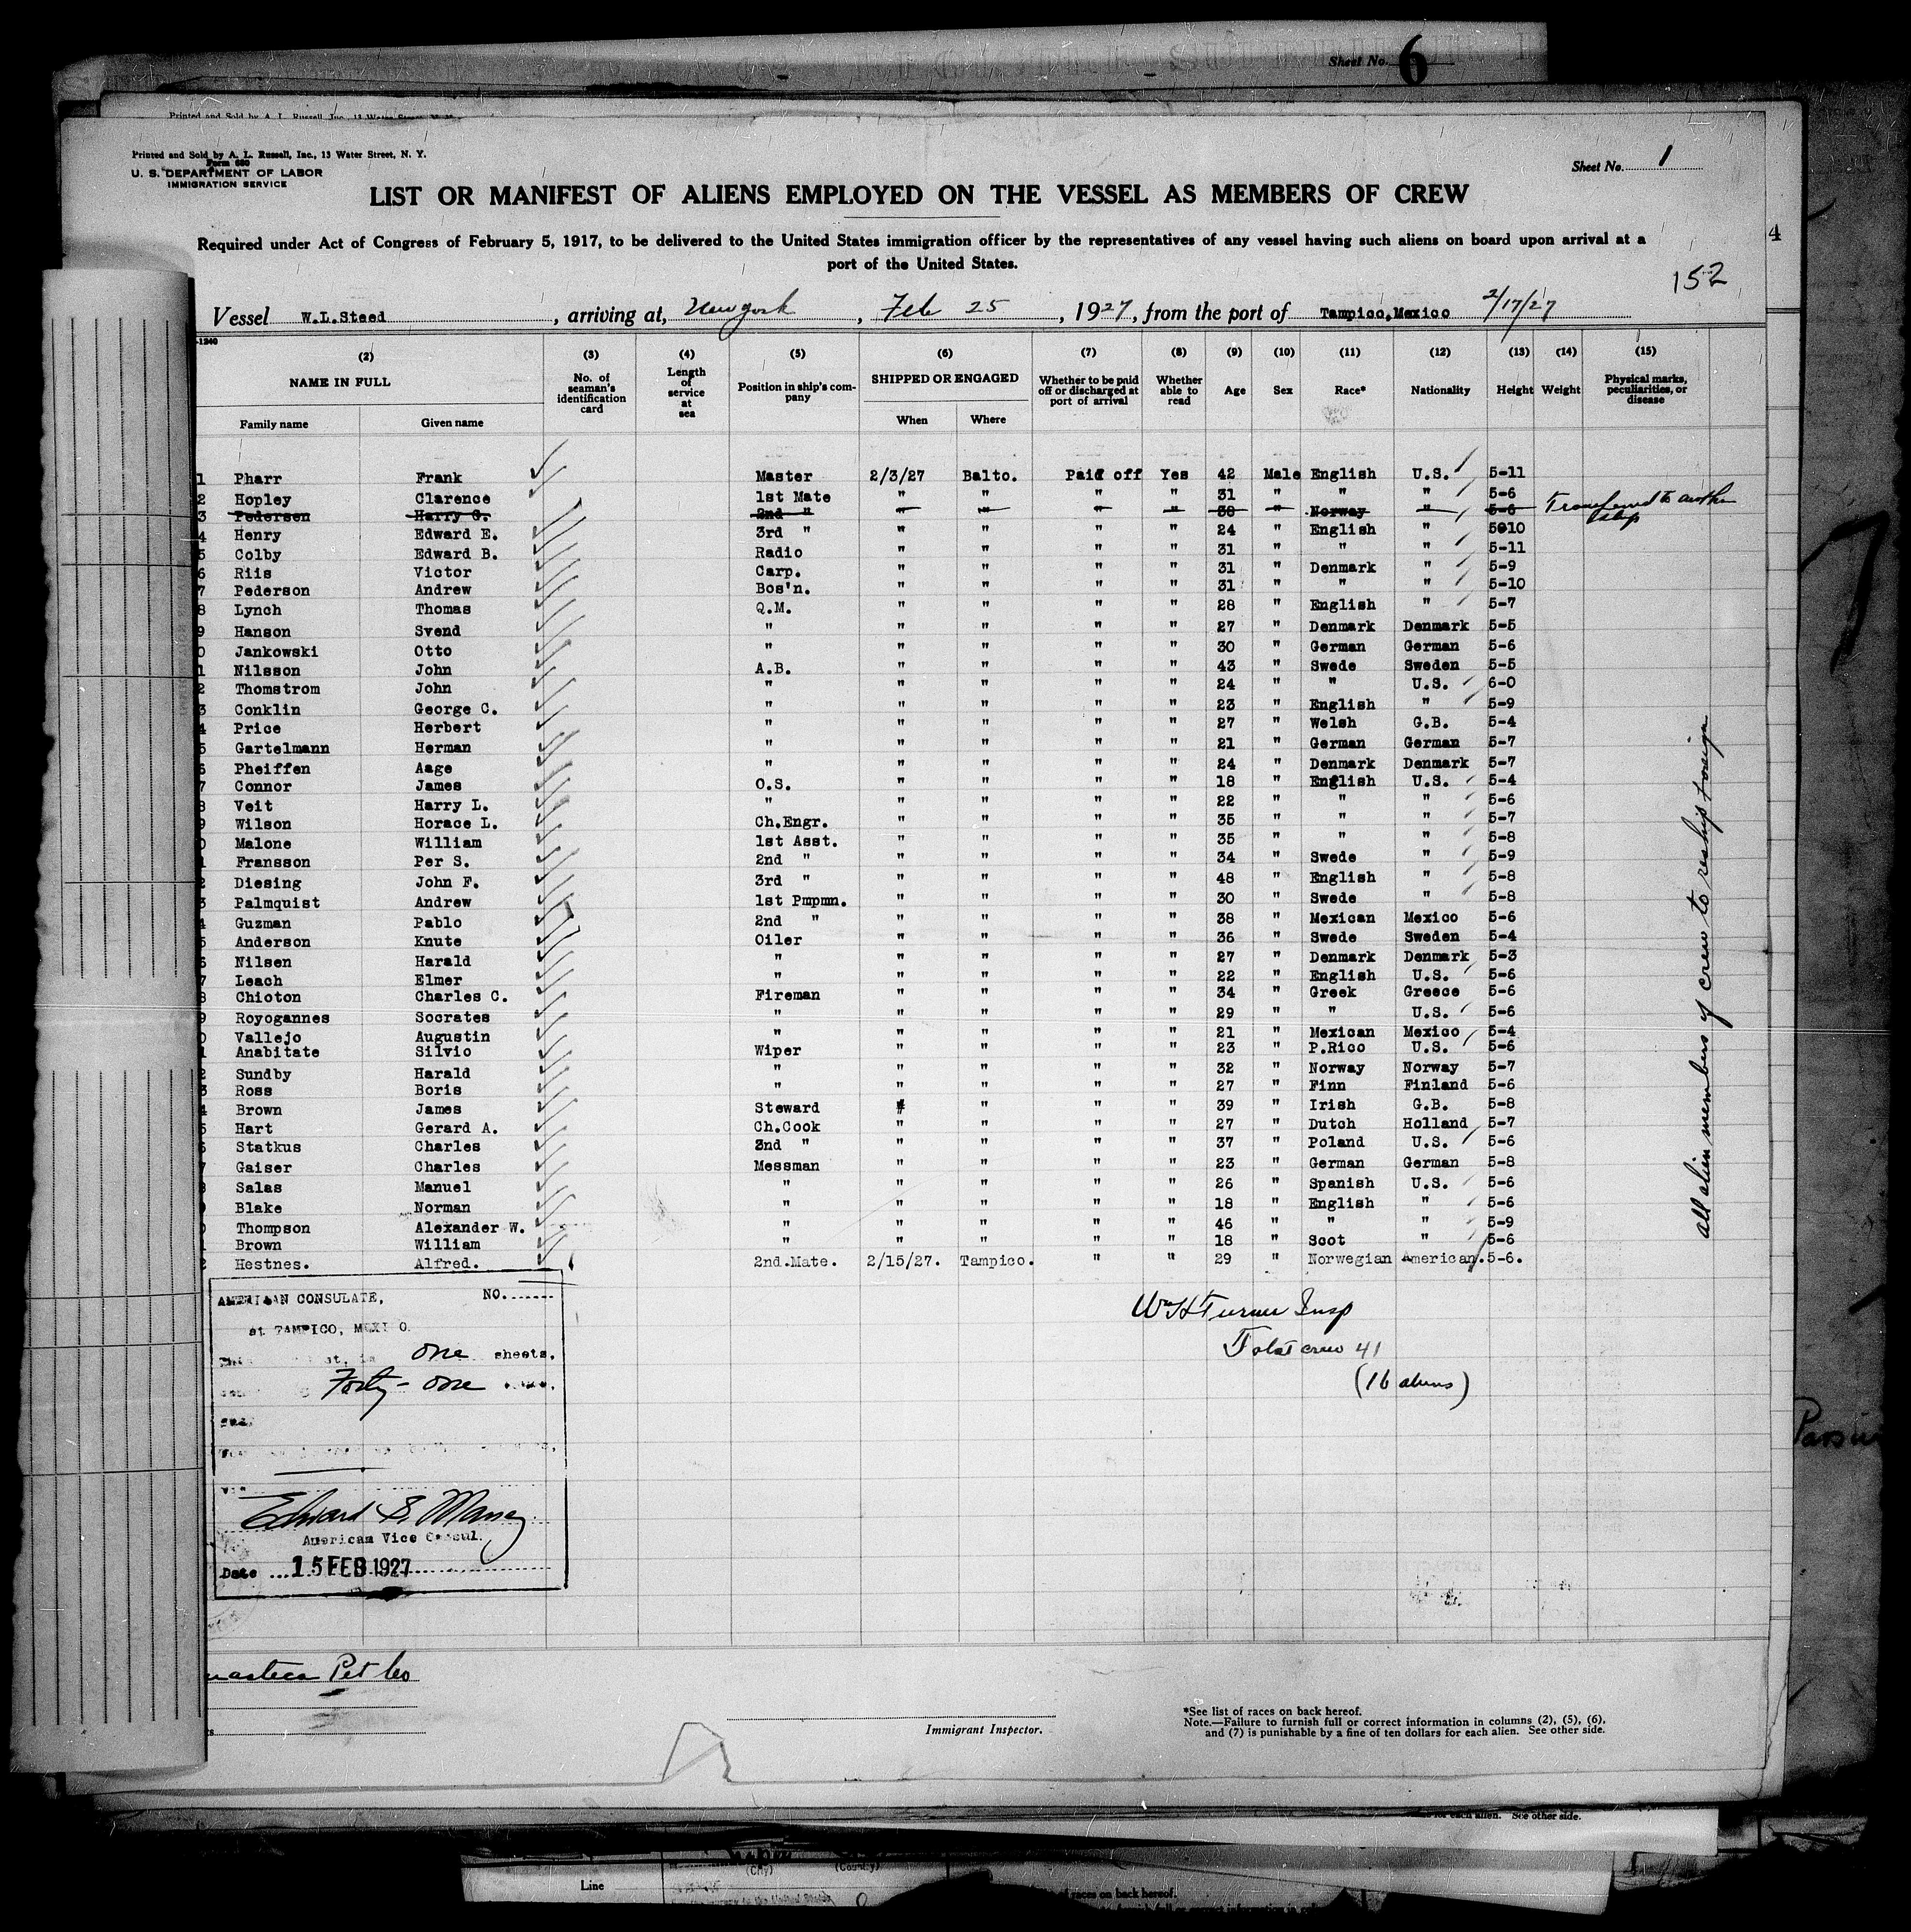 Sheet No. 6
Printed and Sold by A. L. Russell, Inc., 13 Water Street, N. Y.
Form 680
U. S. DEPARTMENT OF LABOR
IMMIGRATION SERVICE
Sheet No. 1
LIST OR MANIFEST OF ALIENS EMPLOYED ON THE VESSEL AS MEMBERS OF CREW
Required under Act of Congress of February 5, 1917, to be delivered to the United States immigration officer by the representatives of any vessel having such aliens on board upon arrival at a
port of the United States.
4
152
Vessel W.L.Steed, arriving at, New york, Feb 25, 1927, from the port of Tampico,Mexico 2/17/27
-1240
(2) (3) (4) (5) (6) (7) (8) (9) (10) (11) (12) (13) (14) (15)
NAME IN FULL No. of seaman's identification card Length of service at sea Position in ship's company SHIPPED OR ENGAGED Whether to be paid off or discharged at port of arrival Whether able to read Age Sex Race* Nationality Height Weight Physical marks, peculiarities, or disease
Family name Given name When Where
1 Pharr Frank Master 2/3/27 Balto. Paid off Yes 42 Male English U.S. 5-11
2 Hopley Clarence 1st Mate " " " " 31 " " " 5-6
3 Pedersen Harry G. 2nd " " " " " 38 " Norway " 5-6 Transferred to another ship
4 Henry Edward E. 3rd " " " " " 24 " English " 5010
5 Colby Edward B. Radio " " " " 31 " " " 5-11
6 Riis Victor Carp. " " " " 31 " Denmark " 5-9
7 Pederson Andrew Bos'n. " " " " 31 " " " 5-10
8 Lynch Thomas Q.M. " " " " 28 " English " 5-7
9 Hanson Svend " " " " " 27 " Denmark Denmark 5-5
0 Jankowski Otto " " " " " 30 " German German 5-6
1 Nilsson John A.B. " " " " 43 " Swede Sweden 5-5
2 Thomstrom John " " " " " 24 " " U.S. 6-0
3 Conklin George C. " " " " " 23 " English " 5-9
4 Price Herbert " " " " " 27 " Welsh G.B. 5-4
5 Gartelmann Herman " " " " " 21 " German German 5-7
6 Pheiffen Aage " " " " " 24 " Denmark Denmark 5-7
7 Connor James O.S. " " " " 18 " English U.S. 5-4
8 Veit Harry L. " " " " " 22 " " " 5-6
9 Wilson Horace L. Ch.Engr. " " " " 35 " " " 5-7
0 Malone William 1st Asst. " " " " 35 " " " 5-8
1 Fransson Per S. 2nd " " " " " 34 " Swede " 5-9
2 Diesing John F. 3rd " " " " " 48 " English " 5-8
3 Palmquist Andrew 1st Pmpmn. " " " " 30 " Swede " 5-8
4 Guzman Pablo 2nd " " " " " 38 " Mexican Mexico 5-6
5 Anderson Knute Oiler " " " " 36 " Swede Sweden 5-4
6 Nilsen Harald " " " " " 27 " Denmark Denmark 5-3
7 Leach Elmer " " " " " 22 " English U.S. 5-6
8 Chioton Charles C. Fireman " " " " 34 " Greek Greece 5-6
9 Royogannes Socrates " " " " " 29 " " U.S. 5-6
0 Vallejo Augustin " " " " " 21 " Mexican Mexico 5-4
1 Anabitate Silvio Wiper " " " " 23 " P.Rico U.S. 5-6
2 Sundby Harald " " " " " 32 " Norway Norway 5-7
3 Ross Boris " " " " " 27 " Finn Finland 5-6
4 Brown James Steward " " " " 39 " Irish G.B. 5-8
5 Hart Gerard A. Ch.Cook " " " " 27 " Dutch Holland 5-7
6 Statkus Charles 2nd " " " " " 37 " Poland U.S. 5-6
7 Gaiser Charles Messman " " " " 23 " German German 5-8
8 Salas Manuel " " " " " 26 " Spanish U.S. 5-6
9 Blake Norman " " " " " 18 " English " 5-6
0 Thompson Alexander W. " " " " " 46 " " " 5-9
1 Brown William " " " " " 18 " Scot " 5-6
2 Hestnes. Alfred. 2nd.Mate. 2/15/27. Tampico. " " 29 " Norwegian American. 5-6.
all alien members of crew to reship foreign
AMERICAN CONSULATE, NO.
at TAMPICO, MEXICO.
one sheets.
Forty-one
Wm H Turner Insp
Total crew 41
(16 aliens)
Edward S. Maney
American Vice Consul.
Date 15 FEB 1927
Huasteca Pet Co
Immigrant Inspector.
*See list of races on back hereof.
Note.—Failure to furnish full or correct information in columns (2), (5), (6),
and (7) is punishable by a fine of ten dollars for each alien. See other side.
for each alien. See other side.
(City) (Country)
Line
of races on back hereof.